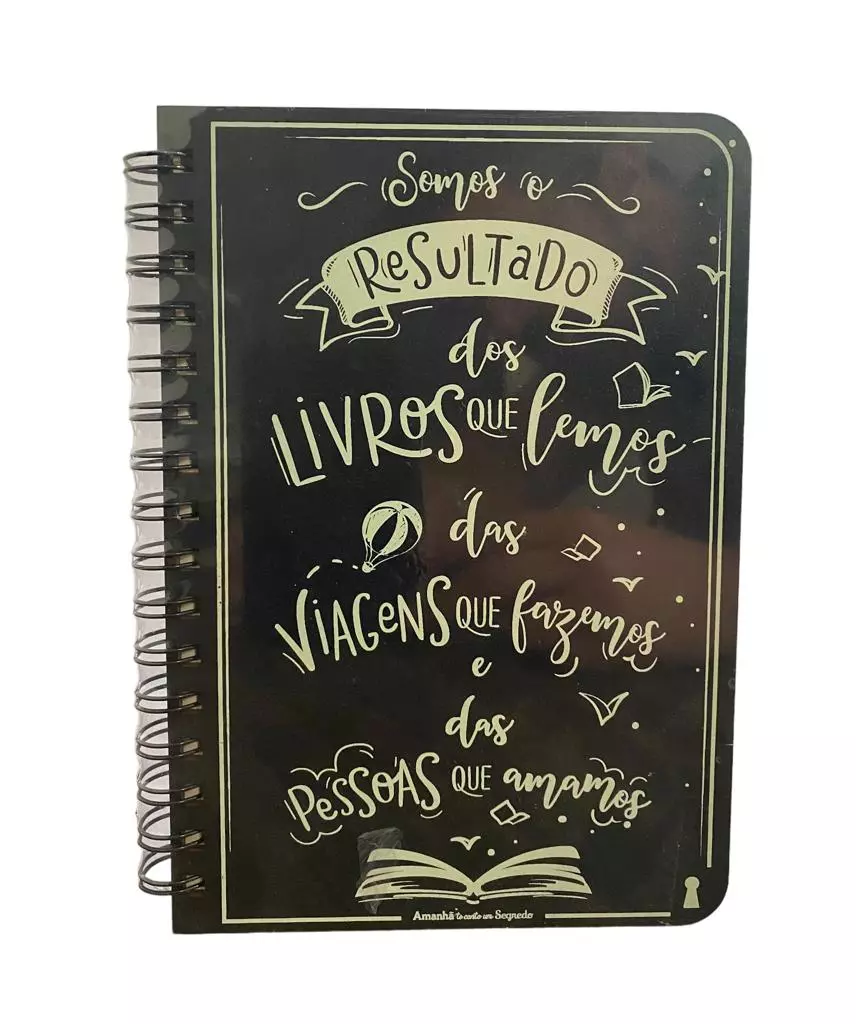 Somos o
ReSULTaDO
dos
LiVROS QUE lemos
das
ViAGeNS QUE fazemos
e
das
PeSSOAS QUE amamos
Amanhã te conto um Segredo